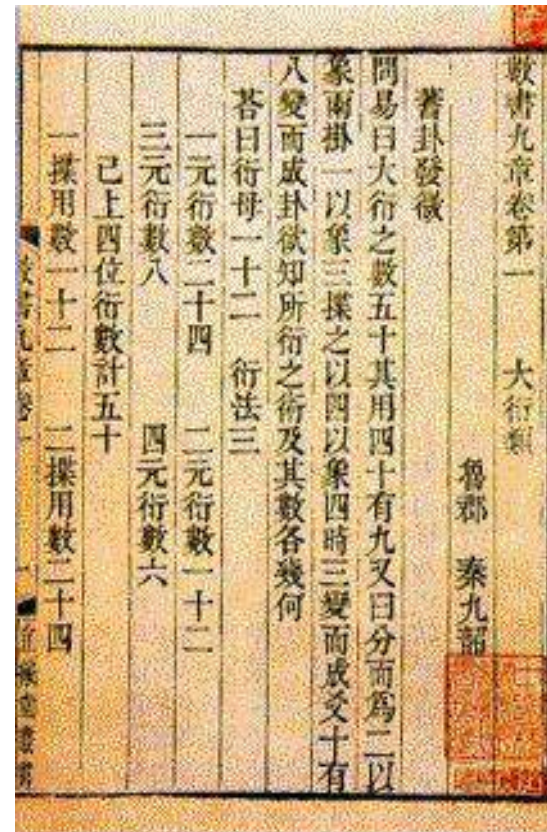 數書九章卷第一 大衍類
魯郡 秦九韶
蓍卦發微
問易曰大衍之數五十其用四十有九又曰分而爲二以
象兩掛一以象三揲之以四以象四時三變而成爻十有
八變而成卦欲知所衍之術及其數各幾何
荅曰衍母一十二 衍法三
一元衍數二十四 二元衍數一十二
三元衍數八 四元衍數六
已上四位衍數計五十
一揲用數一十二 二揲用數二十四
數書九章卷一